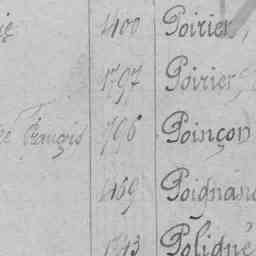 400 Poirier,
1797 Poirier,
François 796 Poinçon
469 Poignan
Poligné